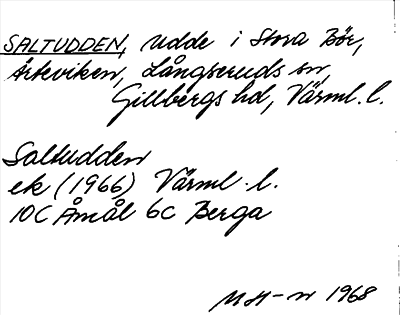 SALTUDDEN, udde i Stora Bör,
Årteviken, Långseruds sn,
Gillbergs hd, Värml. l.
Saltudden
ek (1966) Värml. l.
10C Åmål 6c Berga
1968